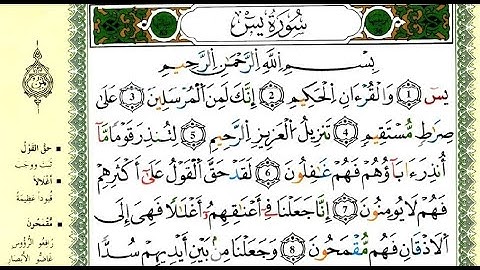 سُورَةُ يسٓ
بِسْمِ اللَّهِ الرَّحْمَٰنِ الرَّحِيمِ
يسٓ ١ وَالْقُرْءَانِ الْحَكِيمِ ٢ إِنَّكَ لَمِنَ الْمُرْسَلِينَ ٣ عَلَىٰ
صِرَٰطٍ مُّسْتَقِيمٍ ٤ تَنزِيلَ الْعَزِيزِ الرَّحِيمِ ٥ لِتُنذِرَ قَوْمًا مَّا
أُنذِرَ ءَابَآؤُهُمْ فَهُمْ غَٰفِلُونَ ٦ لَقَدْ حَقَّ الْقَوْلُ عَلَىٰٓ أَكْثَرِهِمْ
فَهُمْ لَا يُؤْمِنُونَ ٧ إِنَّا جَعَلْنَا فِىٓ أَعْنَٰقِهِمْ أَغْلَٰلًا فَهِىَ إِلَى
الْأَذْقَانِ فَهُم مُّقْمَحُونَ ٨ وَجَعَلْنَا مِنۢ بَيْنِ أَيْدِيهِمْ سَدًّا
حَقَّ القَوْلُ
ثَبَتَ وَوَجَبَ
أَغْلَالًا
قُيُودًا عَظِيمَةً
مُقْمَحُونَ
رَافِعُو الرُّؤُوسِ
غَاضُّو الأَبْصَارِ